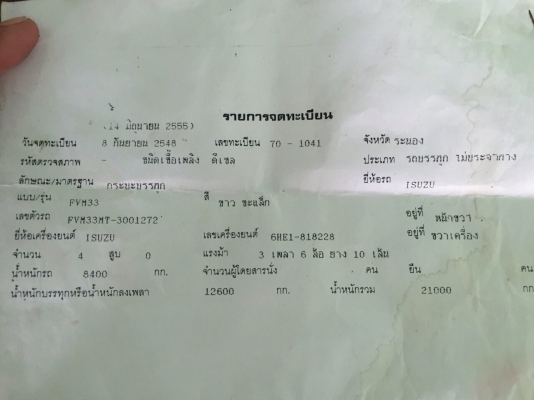 รายการจดทะเบียน
(14 มิถุนายน 2555)
วันจดทะเบียน 8 กันยายน 2548 เลขทะเบียน 70 - 1041 จังหวัด ระนอง
รหัสตรวจสภาพ - ชนิดเชื้อเพลิง ดีเซล ประเภท รถบรรทุก ไม่ประจำทาง
ลักษณะ/มาตรฐาน กระบะบรรทุก ยี่ห้อรถ ISUZU
แบบ/รุ่น FVM33 สี ขาว
เลขตัวรถ FVM33MT-3001272 อยู่ที่ หน้าขวา
ยี่ห้อเครื่องยนต์ ISUZU เลขเครื่องยนต์ 6HE1-818228 อยู่ที่ ขวาเครื่อง
จำนวน 4 สูบ 0 แรงม้า 3 เพลา 6 ล้อ ยาง 10 เส้น
น้ำหนักรถ 8400 กก. จำนวนผู้โดยสารนั่ง คน ยืน คน
น้ำหนักบรรทุกหรือน้ำหนักลงเพลา 12600 กก. น้ำหนักรวม 21000 กก